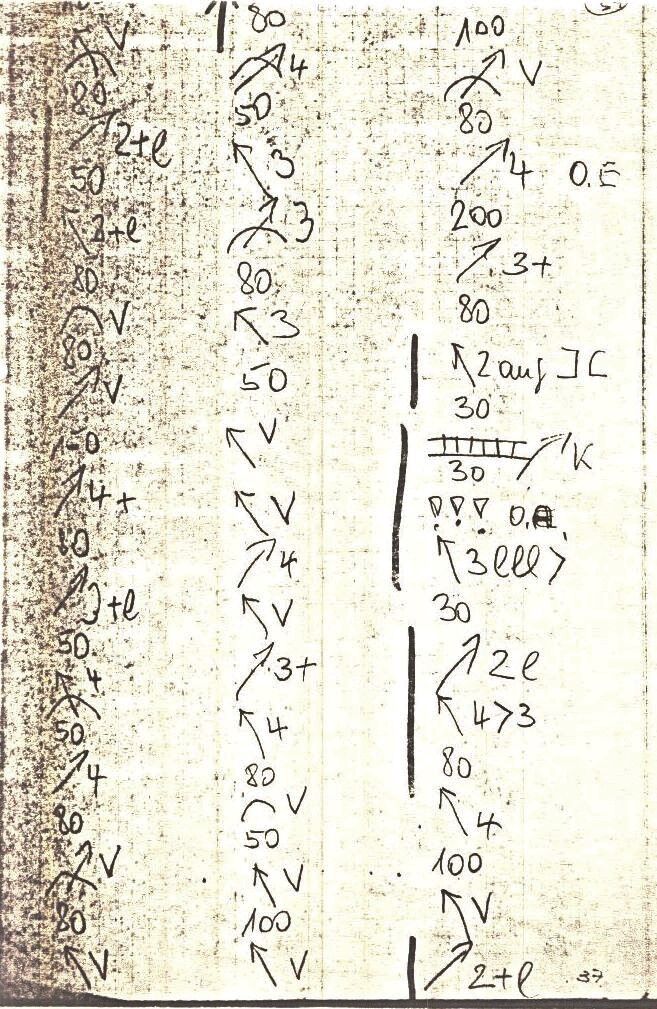 V
80
2+l
50
3+l
80
V
80
V
50
4+
3+l
50
4
50
4
80
V
80
V
80
4
50
3
3
80
3
50
V
V
4
V
3+
4
80
V
50
V
100
V
100
V
80
4 O.E
200
3+
80
2 auf
30
K
30
3lll>
30
2l
4>3
80
4
100
V
2+l
37